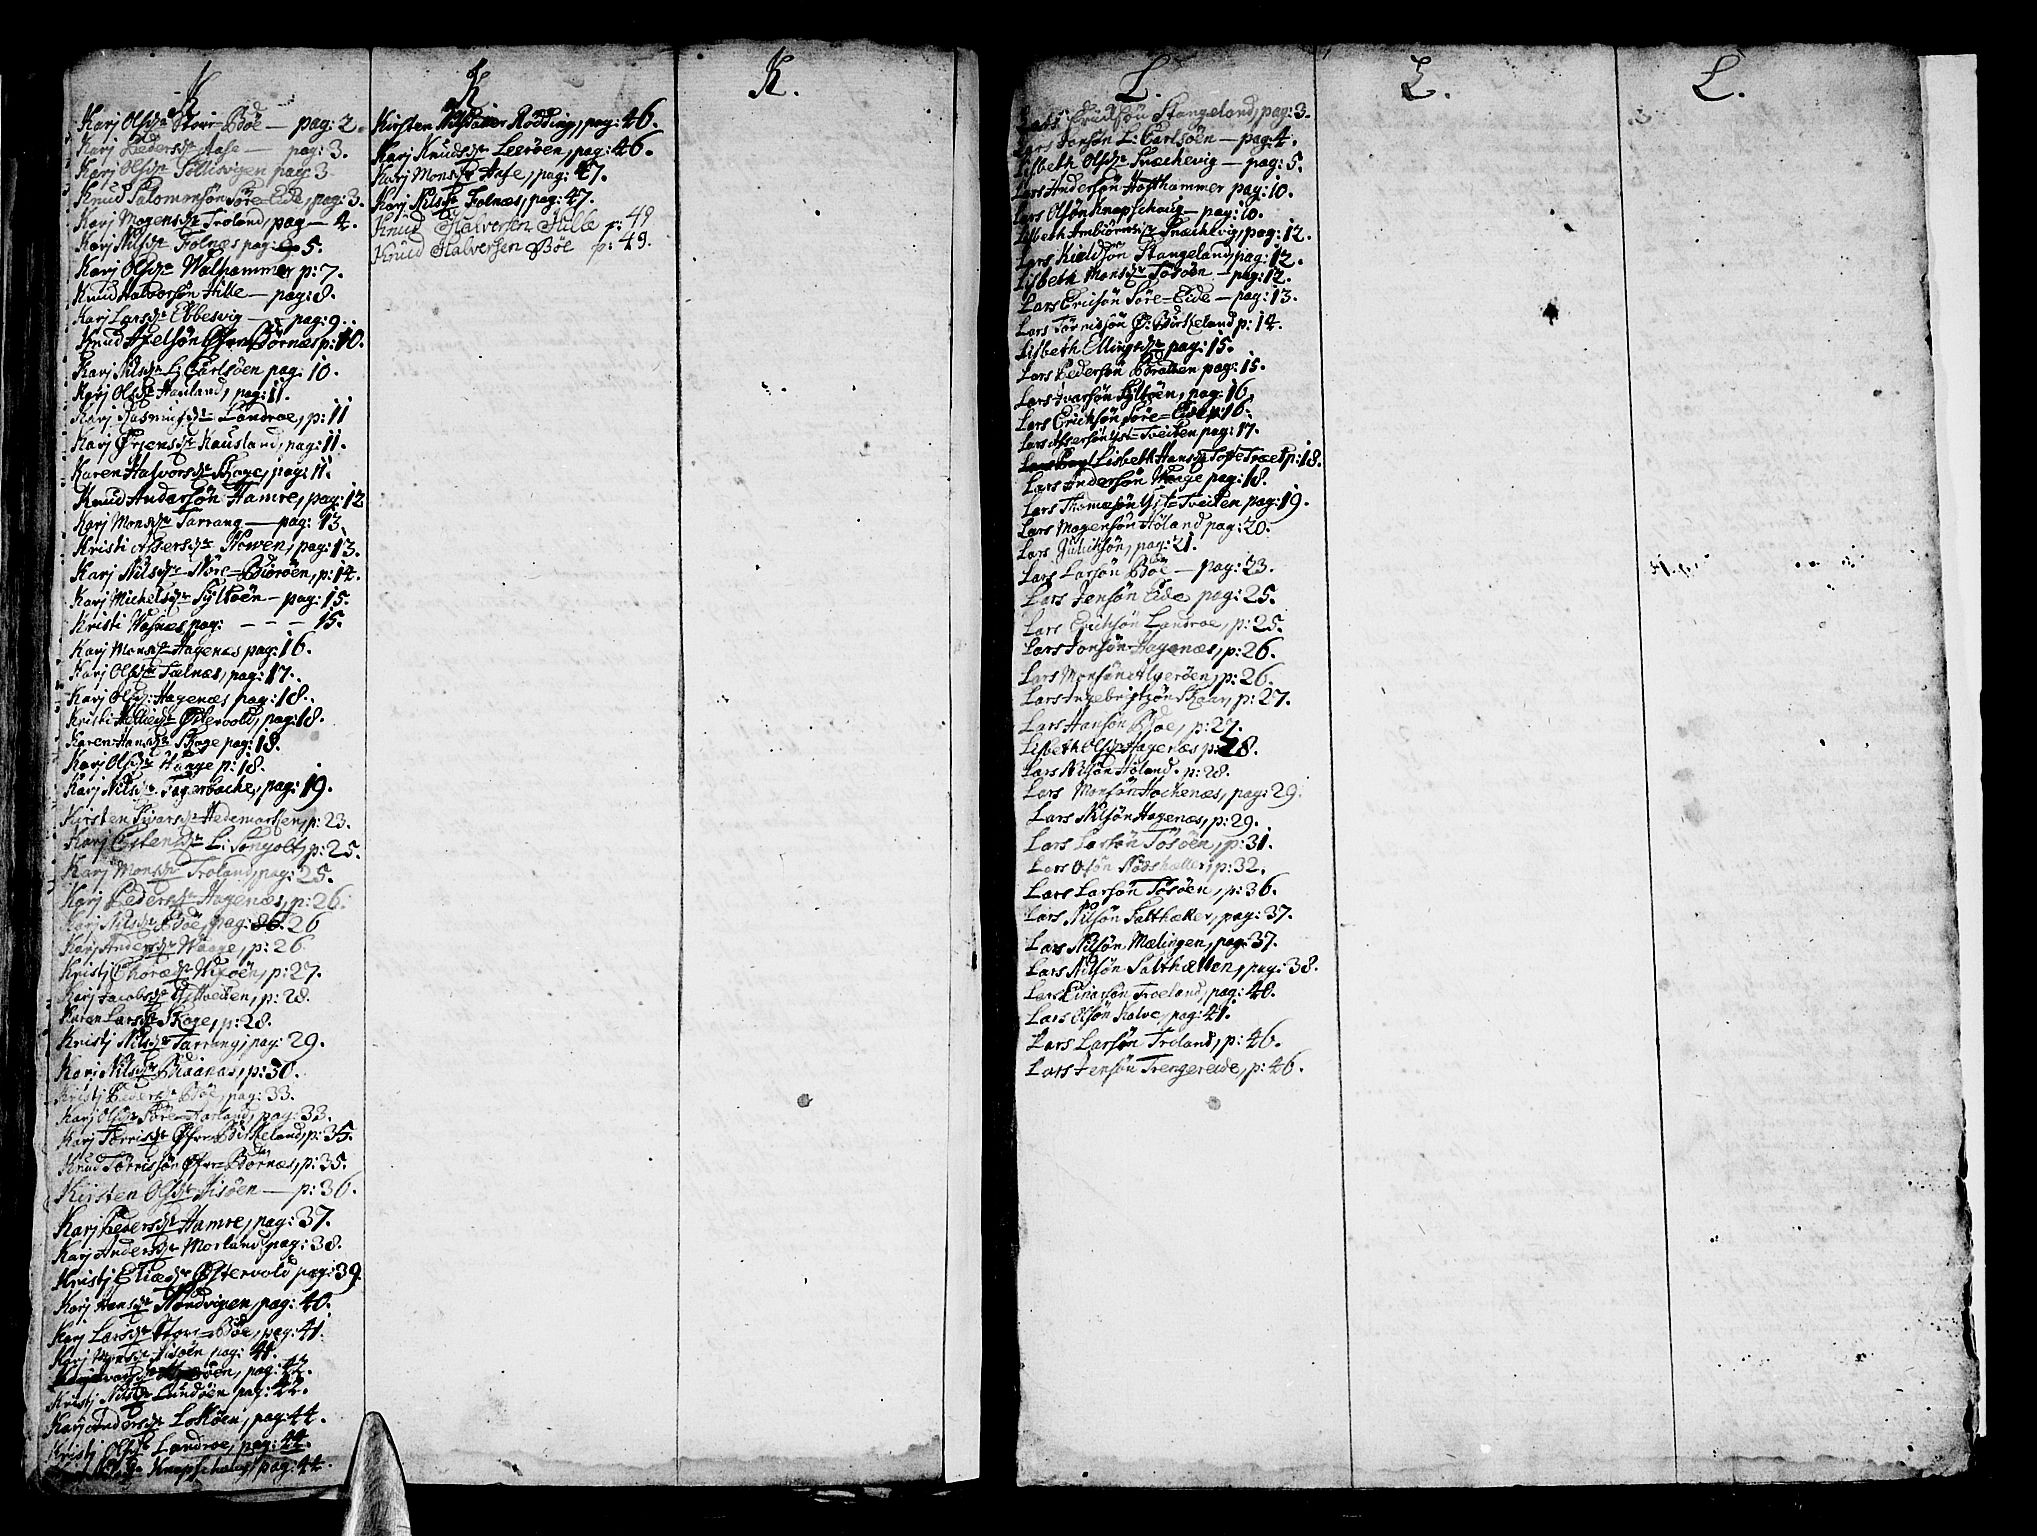 K
Karj Olsdr Stori=Böe — pag: 2.
Karj Pedersdr Aase — pag: 3.
Karj Olsdr Töllisvigen pag: 3
Knud Salomonsön Söre=Eide, pag: 3.
Karj Mogensdr Troland, pag — 4.
Karj Nilsdr Folnæs pag: 5.
Karj Olsdr Walhammer p: 7.
Knud Halvorsön Hille — pag: 8.
Karj Larsdr Ebbesvig — pag: 9.
Knud Axelsön Öfre Börnæs p: 10.
Karj Nilsdr L: Carlsöen pag: 10.
Karj Olsdr Hauland, pag: 11.
Karj Rasmusdr Landroe, p: 11
Karj Örjensdr Kausland, pag: 11.
Karen Halvorsdr Skoge, pag: 11.
Knud Andersön Hamre, pag: 12
Karj Monsdr Tarrang — pag: 13.
Kristi Assersdr Howen, pag: 13.
Karj Nilsdr Nore=Biöröen, p: 14.
Karj Michelsdr Syltöen — pag: 15.
Kristi Wasnæs pag: - - - 15.
Karj Monsdr Hagenæs pag: 16.
Karj Olsdr Tælnæs, pag: 17.
Karj Olsdr: Hagenæs pag: 18.
Kristi Östervold, pag: 18.
Karen Hansdr Skoge pag: 18.
Karj Olsdr Hauge p: 18.
Karj Nilsdr Fagerbache, pag: 19.
Kirsten Iwarsdr Hedemarken, p: 23.
Karj Östensdr L: Songolt, p: 25.
Karj Monsdr Troland, pag: 25.
Karj Pedersdr Hagenæs, p: 26.
Karj Nilsdr Böe, pag: 26
Karj Andersdr Waage, p: 26
Kristj Thoredr Wixöen, p: 27.
Karj Jacobsdr Tveiten, p: 28.
Karen Larsdr Skoge, p: 28.
Kristj Nilsdr Tarrang, pag: 29.
Karj Nilsdr Blaanæs, p: 30.
Kristj Pedersdr Böe, pag: 33.
Karj Olsdr Söre=Harland, pag: 33.
Karj Torrisdr Öfre=Birkeland, p: 35.
Knud Torrissön Öfre=Börnæs, p: 35.
Kirsten Olsdr Risöen — p: 36.
Karj Pedersdr Hamre, pag: 37.
Karj Andersdr Morland pag: 38.
Kristj Eliædr Östervold pag: 39.
Karj Hansdr Nordvigen, pag: 40.
Karj Larsdr Stori=Böe, pag: 41.
Karj Monsdr Risöen pag: 41.
pag: 42.
Kristj Nilsdr Lundöen pag: 42.
Karj Andersdr Loköen, pag: 44.
Kristj Olsdr Landroe, pag: 44.
Knapschoug, pag: 44.
K
Kirsten Nilsdatter Rödding, pag: 46.
Karj Knudsdr Leeröen, pag: 46.
Karj Monsdr Aase, pag: 47.
Karj Nilsdr Folnæs, pag: 47.
Knud Halversen Hille p: 49
Knud Halversen Böe p: 49.
K.
L.
Lars Erichsön Stangeland, pag: 3.
Lars Jonsön L: Carlsöen — pag: 4.
Lisbeth Olsdr Snæchevig — pag: 5.
Lars Andersön Hofthammer pag: 10.
Lars Olsön Knapschoug — pag: 10.
Lisbeth Ambiörnsdr Snæchevig, pag: 12.
Lars Kieldsön Stangeland, pag: 12.
Lisbeth Monsdr Tösöen — pag: 12.
Lars Ericsön Söre=Eide — pag: 13.
Lars Törrissön Ö: Birkeland p: 14.
Lisbeth Ellingsdr pag: 15.
Lars Pedersön Boratten pag: 15.
Lars Ivarsön Syltöen, pag: 16.
Lars Ericksön Söre=Eide p: 16.
Lars Assersön Yst=Tveiten pag: 17.
Lisbeth Hansdr Tofte Træet p: 18.
Lars Andersön Waage pag: 18.
Lars Thomæsön Yst=Tveiten pag: 19.
Lars Mogensön Höland pag: 20.
Lars Juliksön, pag: 21.
Lars Larsön Böe — pag: 23.
Lars Jensön Eide pag: 25.
Lars Ericksön Landroe, p: 25.
Lars Jonsön Hagenæs, p: 26.
Lars Monsön Algeröen, p: 26.
Lars Ingebrigtsön Skaar, p: 27.
Lars Hansön Böe, p: 27.
Lisbeth Olsdr Hagenæs p: 28.
Lars Nilsön Höland. p: 28.
Lars Monsön Hochenæs, pag: 29.
Lars Nilsön Hagenæs, p: 29.
Lars Larsön Tösöen, p: 31.
Lars Olsön Nödskallen, p: 32.
Lars Larsön Tösöen, p: 36.
Lars Nilsön Salthæller, pag: 37.
Lars Nilsön Mælingen, pag: 37.
Lars Nilsön Salthællen, pag: 38.
Lars Einarsön Troeland, pag: 40.
Lars Olsön Kalve, pag: 41.
Lars Larsön Troland, p: 46.
Lars Jensön Trengereide, p: 46.
L.
L.